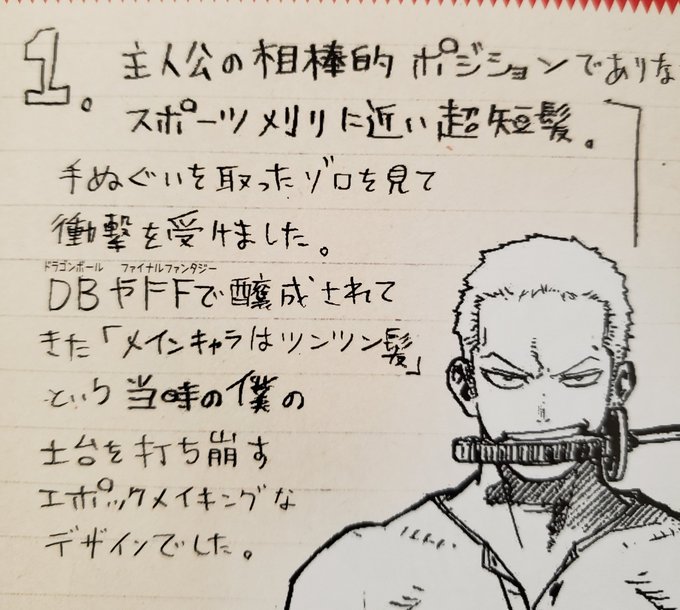 1. 主人公の相棒的ポジションでありな
スポーツメリリに近い超短髪。
手ぬぐいを取ったゾロを見て
衝撃を受けました。
ドラゴンボール ファイナルファンタジー
DBやFFで醸成されて
きた「メインキャラはツンツン髪」
という当時の僕の
土台を打ち崩す
エポックメイキングな
デザインでした。